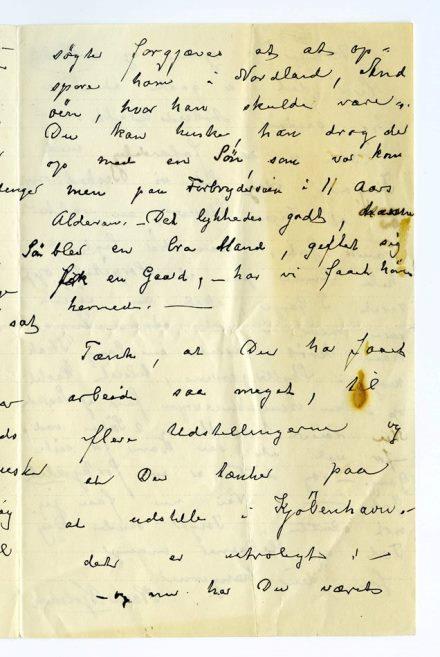 søgte forgjæves at at op=
spore ham i Nordland, And
øën, hvor han skulde være.
Du kan huske, han drog der
op med en Søn, som var kom
men paa Forbryderveien i 11 Aars
Alderen. – Det lykkedes godt,
Søn blev en bra Mand, giftet sig
fik en Gaard, – har vi faaet høre
hernede. —
Tænk, at Du har faaet
arbeide saa meget, til
flere Udstellingerne og
at Du tænker paa
at udstille i Kjøbenhavn. –
det er utroligt! –
– og nu har Du været